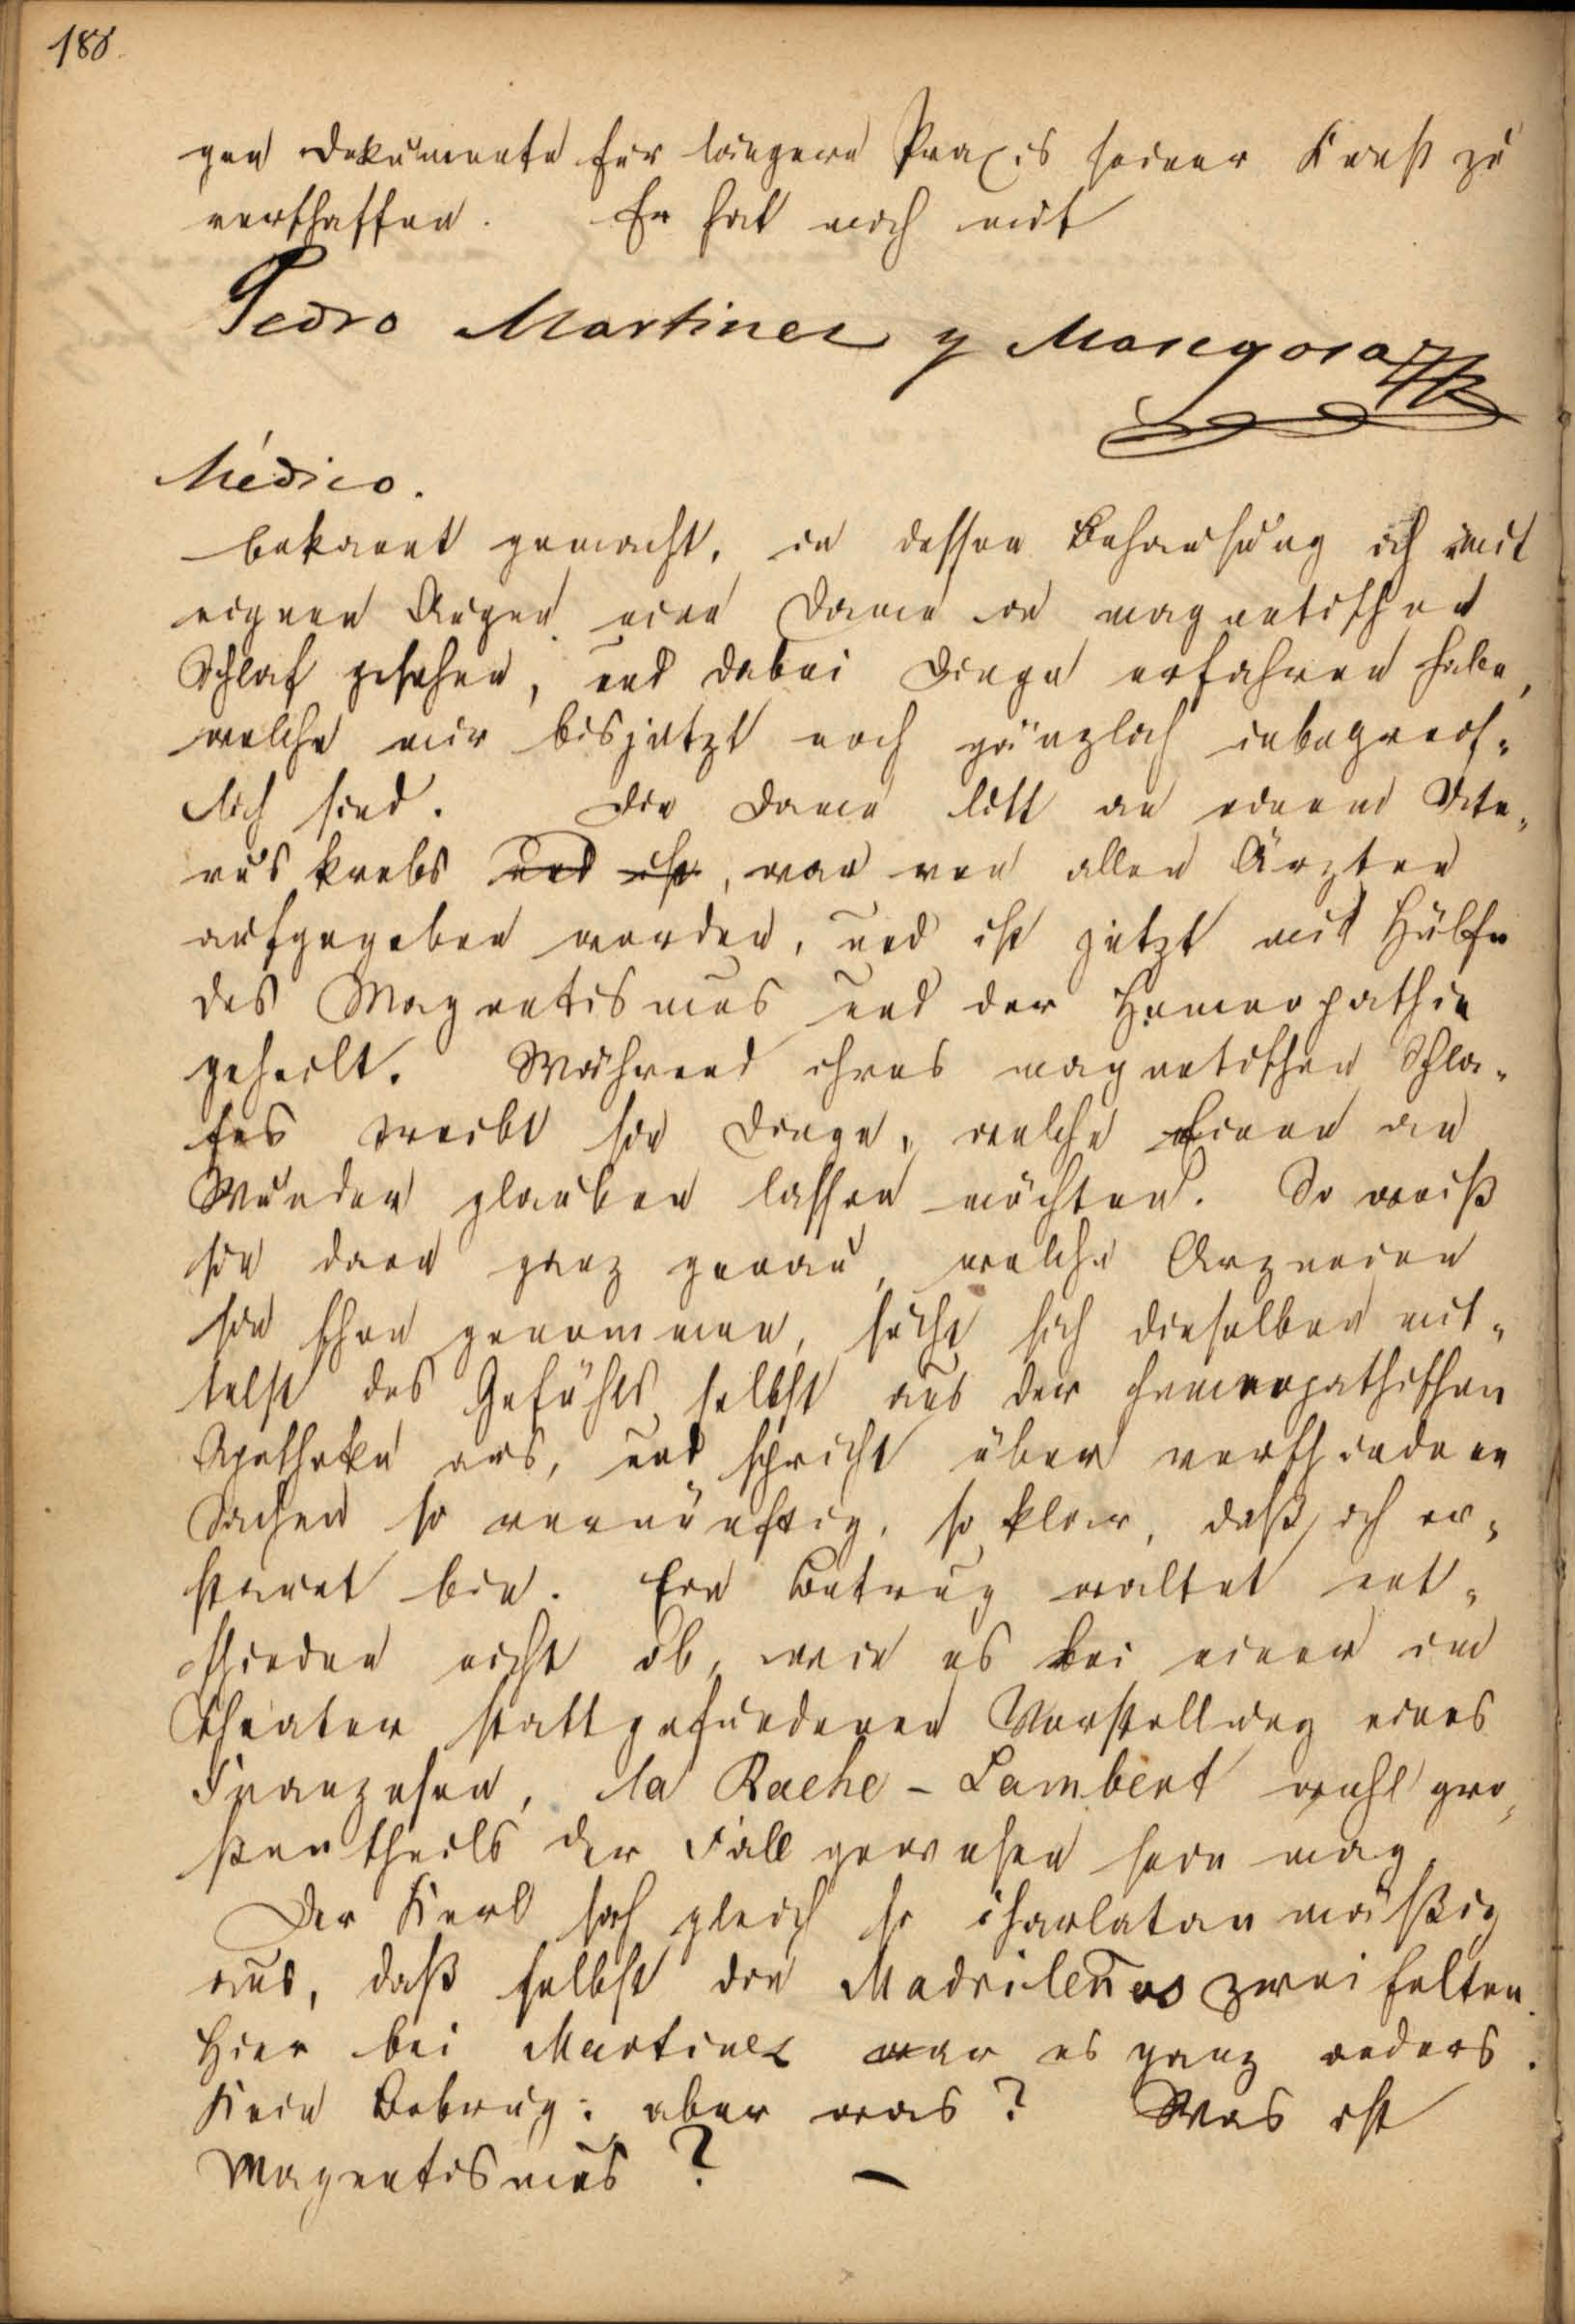 188.
gen Dokumente für längere Praxis seiner Kunst zu
verschaffen. Er hat mich mit
Pedro Martinez y
Médico.
bekannt gemacht, in dessen Behausung ich mit
eignen Augen eine Dame im magnetischen
Schlaf gesehen, und dabei Dinge erfahren habe,
welche mir bisjetzt noch gänzlich unbegreif-
lich sind. Die Dame litt an einem Ute-
rus krebs und ist, war von allen Ärzten
aufgegeben worden, und ist jetzt mit Hülfe
des Magnetismus und der Homeopathie
geheilt. Während ihres magnetischen Schla-
fes treibt sie Dinge, welche Einen an
Wunder glauben lassen möchten. So weiß
sie dann ganz genau, welche Arzneien
sie schon genommen, sucht sich dieselben mit-
telst des Gefühls selbst aus der homeopathischen
Apotheke aus, und spricht über verschiedene
Sachen so vernünftig, so klar, daß ich er-
staunt bin. Ein Betrug waltet ent-
schieden nicht ob, wie es bei einer im
Theater stattgefundenen Vorstellung eines
Franzosen, la Rache - Lambert wohl gro-
ßentheils der Fall gewesen sein mag.
Der Kerl sah gleich so charlatan mäßig
aus, daß selbst die Madrileños zweifelten.
Hier bei Martinez war es ganz anders.
Kein Betrug: aber was? Was ist
Magnetismus? —